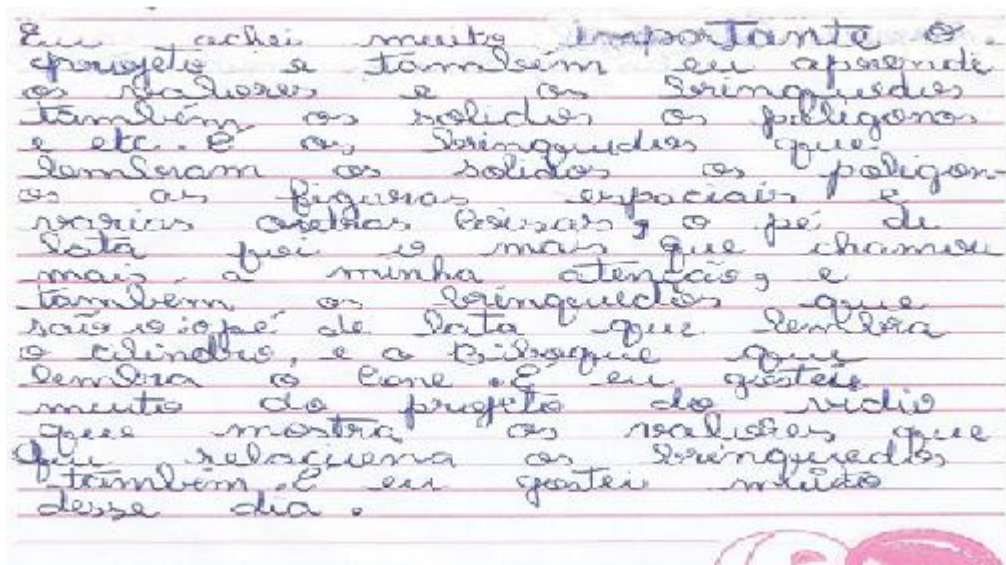 Eu achei muito importante o.
projeto e também eu aprende
os valores e os brinquedos
também os solidos os poligonos
e etc. E os brinquedos que
lembram os solidos os poligon-
os as figuras espaciais e
varias outras coisas, o pé de
lata foi o mais que chamou
mais a minha atenção, e
também os brinquedos que
são o pé de lata que lembra
o cilindro, e o bilboque que
lembra o cone. E eu gostei
muito do projeto do vidio
que mostra os valores que
relaciona os brinquedos
também. E eu gostei muito
desse dia.